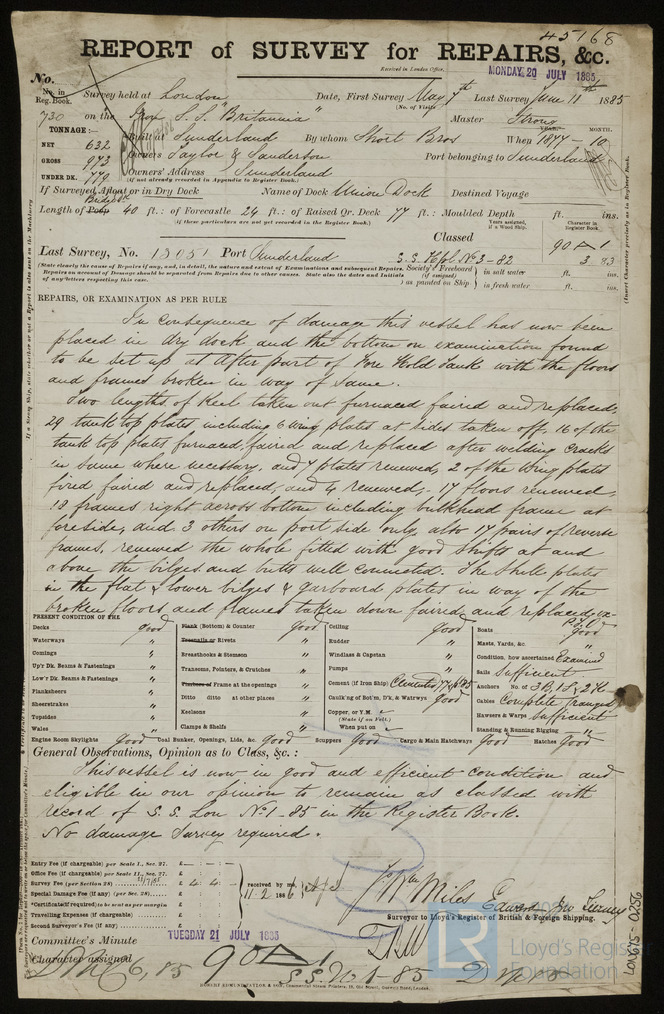 45168
REPORT of SURVEY for REPAIRS, &c.
Received in London Office,
MONDAY 20 JULY 1885
No.
No. in Reg. Book.
Survey held at London Date, First Survey May 7th Last Survey June 11th 1885
(No. of Visits
730 on the Iron S.S. "Britannia" Master Strong
TONNAGE:—
NET 632
GROSS 973
UNDER DK. 779
Built at Sunderland By whom Short Bros When 1877 - 10
YEAR. MONTH.
Owners Taylor & Sanderson Port belonging to Sunderland
Owners' Address Sunderland
(if not already recorded in Appendix to Register Book.)
If Surveyed Afloat or in Dry Dock Name of Dock Union Dock Destined Voyage
Length of Poop Bridge 40 ft.: of Forecastle 24 ft.: of Raised Qr. Deck 77 ft.: Moulded Depth ft. ins.
(if these particulars are not yet recorded in the Register Book.)
Years assigned, if a Wood Ship.
Character in Register Book.
Classed 90 A 1
Last Survey, No. 13051 Port Sunderland S.S. Hpl. No 3 - 82 3 83
(State clearly the cause of Repairs if any, and, in detail, the nature and extent of Examinations and subsequent Repairs.
Repairs on account of Damage should be separated from Repairs due to other causes. State also the dates and initials of any letters respecting this case.
Society's Freeboard (if assigned) as painted on Ship in salt water ft. ins.
in fresh water ft. ins.
REPAIRS, OR EXAMINATION AS PER RULE
In consequence of damage this vessel has now been
placed in dry dock and the bottom on examination found
to be set up at after part of Fore Hold Tank with the floors
and frames broken in way of same.
Two lengths of Keel taken out furnaced faired and replaced,
29 tank top plates including 6 wing plates at sides taken off, 16 of the
tank top plates furnaced, faired and replaced after welding cracks
in same where necessary, and 7 plates renewed, 2 of the wing plates
fired faired and replaced, and 4 renewed, - 17 floors renewed,
18 frames right across bottom including bulkhead frame at
foreside, and 3 others on port side only, also 17 pairs of reverse
frames, renewed the whole fitted with good shifts at and
above the bilges and butts well connected. The Shell plates
in the flat & lower bilges & garboard plates in way of the
broken floors and frames taken down faired and replaced, viz-
P.T.O.
PRESENT CONDITION OF THE
Decks good
Waterways "
Comings "
Up'r Dk. Beams & Fastenings "
Low'r Dk. Beams & Fastenings "
Planksheers "
Sheerstrakes "
Topsides "
Wales "
Plank (Bottom) & Counter good
Treenails or Rivets "
Breasthooks & Stemson "
Transoms, Pointers, & Crutches "
Timbers or Frame at the openings "
Ditto ditto at other places "
Keelsons "
Clamps & Shelfs "
Ceiling good
Rudder "
Windlass & Capstan "
Pumps "
Cement (if Iron Ship)
Caulk'ng of Bot'm, D'k, & Watrwys good
Copper, or Y.M.
(State if on Felt.)
When put on
Boats good
Masts, Yards, &c. "
Condition, how ascertained Examined
Sails Sufficient
Anchors No. of 3 B, 1 S, 2 K
Cables Complete & ranged
Hawsers & Warps Sufficient
Standing & Running Rigging "
Engine Room Skylights Good Coal Bunker, Openings, Lids, &c. Good Scuppers Good Cargo & Main Hatchways Good Hatches Good
General Observations, Opinion as to Class, &c.:
This vessel is now in good and efficient condition and
eligible in our opinion to remain as classed with
record of S.S. Lon No 1 - 85 in the Register Book.
No damage Survey required.
Entry Fee (if chargeable) per Scale I., Sec. 27. £
Office Fee (if chargeable) per Scale II., Sec. 27. £
Survey Fee (per Section 28) £ 4 : 4 : -
Special Damage Fee (if any) (per Sec. 28). £
*Certificate (if required) to be sent as per margin
Travelling Expenses (if chargeable) £
Second Surveyor's Fee (if any) £
received by me,
11-2 1886
Wm Miles
Surveyor to Lloyd's Register of British & Foreign Shipping.
Committee's Minute TUESDAY 21 JULY 1885
Character assigned 90 A 1
S.S. No 1 - 85
ROBERT EDMUND TAYLOR & SON, Commercial Steam Printers, 19, Old Street, Goswell Road, London.
Lloyd's Register
Foundation
LON675-0256